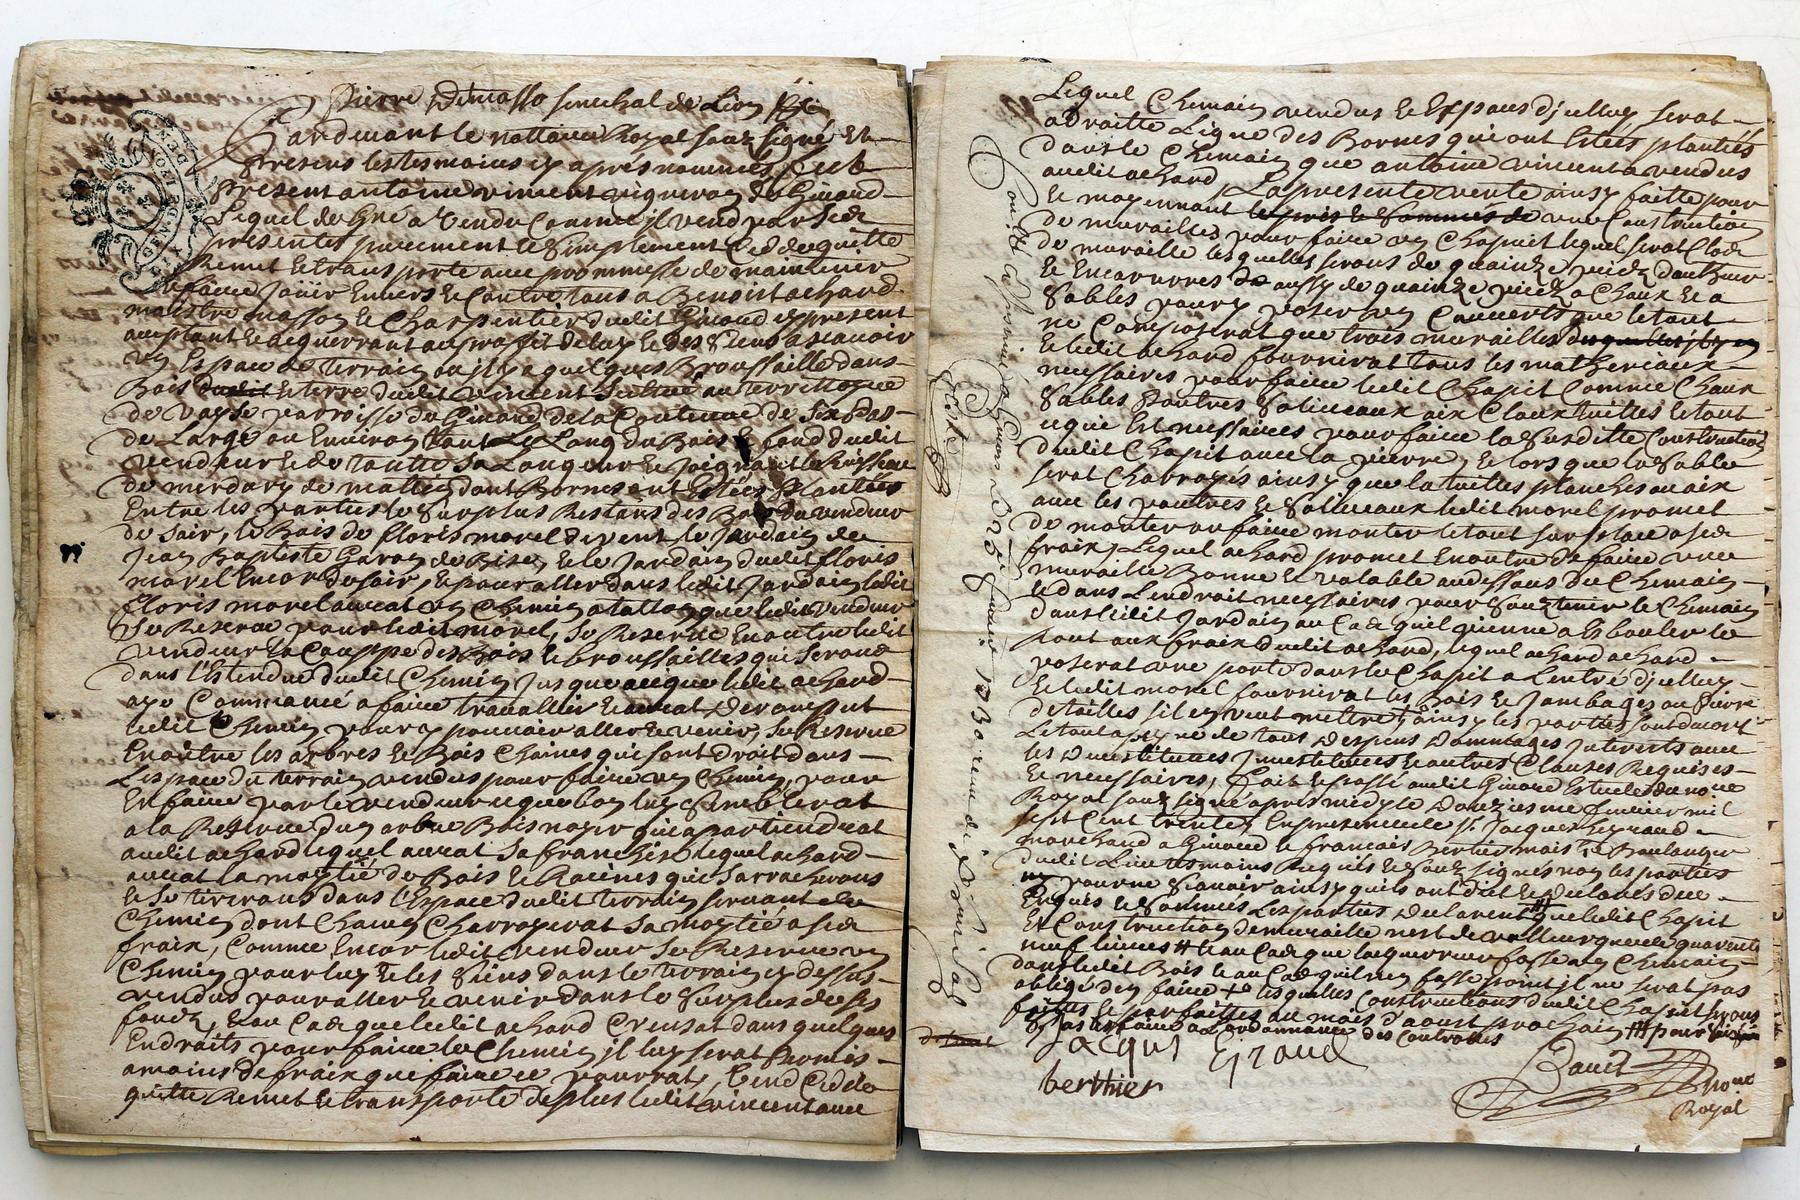 Pierre Demasso senechal de Lion &c
Pardevant le nottaire Royal sous signé et
presens les tesmoins cy apres nommés, fut
present antoine vincent vigneron de Givord
Lequel de gré a vendu comme jl vend par ses
presentes purement et simplement cedde quitte
Remet et transporte avec prommesse de maintenir
et faire joüir envers et contre tous a Benoist achard
maistre masson et Charpentier dudit Givord cy present
acceptant et acquerrant au proffit de luy et des siens a scavoir
vn Espace de terrain ou jl y a quelques Broussaille dans
Bois et terre dudit vincent scitué au territtoyre
de parroisse de Givord de la Contenue de six pas
de Large ou Environ tout Le Long du Bois et fond dudit
vendeur et de toutte sa Longeur et Joignant le Ruisseau
de de mattin dont Bornes ont Estées plantées
Entre les parties le surplus Restans des Bois du vendeur
de soir, le Bois de floris morel de vent le Jardain de
Jean Baptiste Garon de Bize, et le Jardain dudit floris
morel Encor de soir, et pour aller dans ledit Jardain ledit
floris morel aurat vn Chemin a tallon que ledit vendeur
se Reserve pour ledit morel, se Reserve En outre ledit
vendeur la Couppe des Bois et broussailles qui seront
dans l'Estendue dudit Chemin jusque a ceque ledit achard
aye Commancé a faire travallier
ledit Chemin pour y pouvoir aller et venir, se Reserve
En outre les arbres et Bois Chaines qui sont droit dans
Lespace du terrain vendus pour faire vn Chemin, pour
En faire par le vendeur ceque bon luy semblerat
a la Reserve dun arbre Bois noyer qui apartiendrat
audit achard lequel aurat sa franchise lequel achard
aurat la moytié du Bois et Racines qui sarracherons
et se tirerons dans l'Espace dudit terrain servant de
Chemin dont Chacun Charroyerat sa moytié a ses
fraix, Comme Encor ledit vendeur se Reserve vn
Chemin pour luy et les siens dans le terrain cy dessus
vendus pour aller et venir dans le surplus de ses
fonds, et au Cas que ledit achard Creusat dans quelques
Endroits pour faire le Chemin jl luy serat permis
a moins de fraix que faire ce pourrat, vend cedde
quitte Remet et transporte de plus ledit vincent avec
Lequel Chemain vendus et Espaus d'jcelluy serat
a droitte Ligne des Bornes qui ont Estées plantées
dans le Chemain que antoine vincent a vendus
audit achard
La presente vente ainsy faitte pour
et moyennant le prix et sommes de vne Construction
de murailles pour faire vn Chapit lequel serat Clos
de muraille lesquelles serons de quainze pieds dauteur
et Encarures de aussy de quainze pieds a Chaux et a
sables pour y poser vn Couverts que le tout
ne Composerat que trois murailles
et ledit achard fournirat tous les matheriaux
nessaires pour faire ledit Chapit Comme Chaux
sables poutres soliveaux aix Cloux tuilles et tout
ceque Est nessaires pour faire la susditte Construction
dudit Chapit avec la pierre, et lors que le sable
serat Charroyés ainsy que la tuilles planches ou aix
avec les poutres et solliveaux ledit morel promet
de monter ou faire monter le tout sur place a ses
fraix, Lequel achard promet En outre de faire vne
muraille Bonne et valable au dessous du Chemain
et dans Lendroit nessaires pour soustenir le Chemain
dans ledit Jardain au Cas quil vienne a Esbouler le
tout aux fraix dudit achard, lequel achard achard
poserat vne porte dans le Chapit a Lentré d'jcelluy
et ledit morel fournirat les Bois et Jambages ou pierre
de tailles sil en veut mettre, ainsy les parties sont dacort
Le tout a peyne de tous despens dommages jnterests avec
les Constitutions Jnvestitures et autres Clauses Requises
et nessaires, fait et passé audit Givord Estude du noue
Royal sous signé apres midy le douziesme feuvrier mil
sept Cent trente, En presence de sr. Jacques Giraud
marchand a Givord et francois Berthier maitre Boulanger
dudit Lieu tesmoins Requis et sous signés non les parties
pour ne scavoir ainsy quils ont dict et declarés de ce
Enquis et sommés Les parties declarent # que ledit Chapit
et Construction de muraille nest de valleur que de quarente
neuf livres # et au Cas que lacquerreur fasse vn Chemain
dans ledit Bois et au Cas quil nen fasse point jl ne serat pas
obligé den faire + lesquelles Constructions dudit Chapit serons
faittes et parfaittes au mois d'aoust prochain # pour
satisfaire a Lordonnance des Controlles
Jacques Giraud
berthier
Bauet
Noue
Royal
Con.lé
a Givors le 25e feuvrier 1730